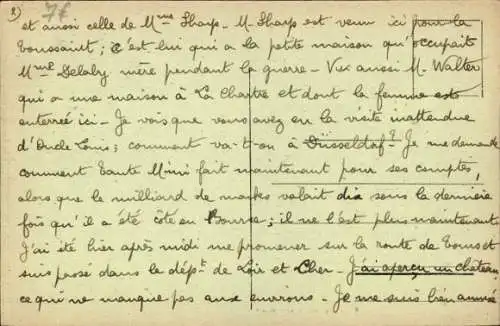 2) 7f
et aussi celle de Mme Sharp - M. Sharp est venu ici pour la
Toussaint; c'est lui qui a la petite maison qu'occupait
Mme Delaby mère pendant la guerre - Vu aussi M. Walter
qui a une maison à La Chartre et dont la femme est
enterrée ici - Je vois que vous avez eu la visite inattendue
d'Oncle Louis; comment va-t-on à Düsseldorf? Je me demande
comment Tante Mimi fait maintenant pour ses comptes,
alors que le milliard de marks valait dix sous la dernière
fois qu'il a été côté en Bourse; il ne l'est plus maintenant
J'ai été hier après midi me promener sur la route de Tours et
suis passé dans le dépt de Loir et Cher - J'ai aperçu un château
ce qui ne manque pas aux environs - Je me suis bien amusé